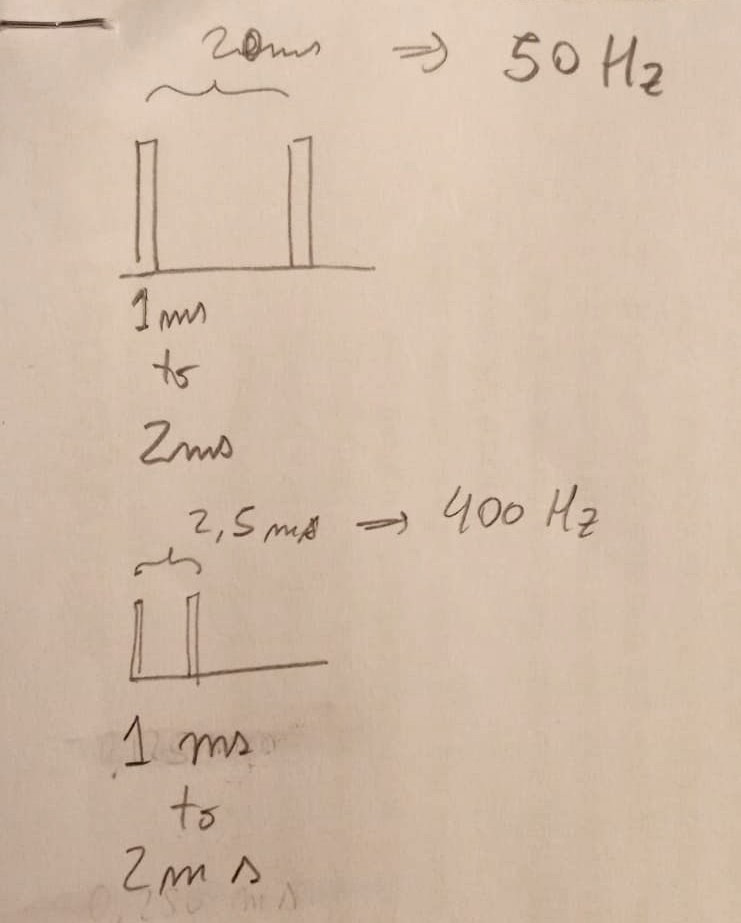 20ms ⇒ 50 Hz
1ms
to
2ms
2,5ms ⇒ 400 Hz
1 ms
to
2ms